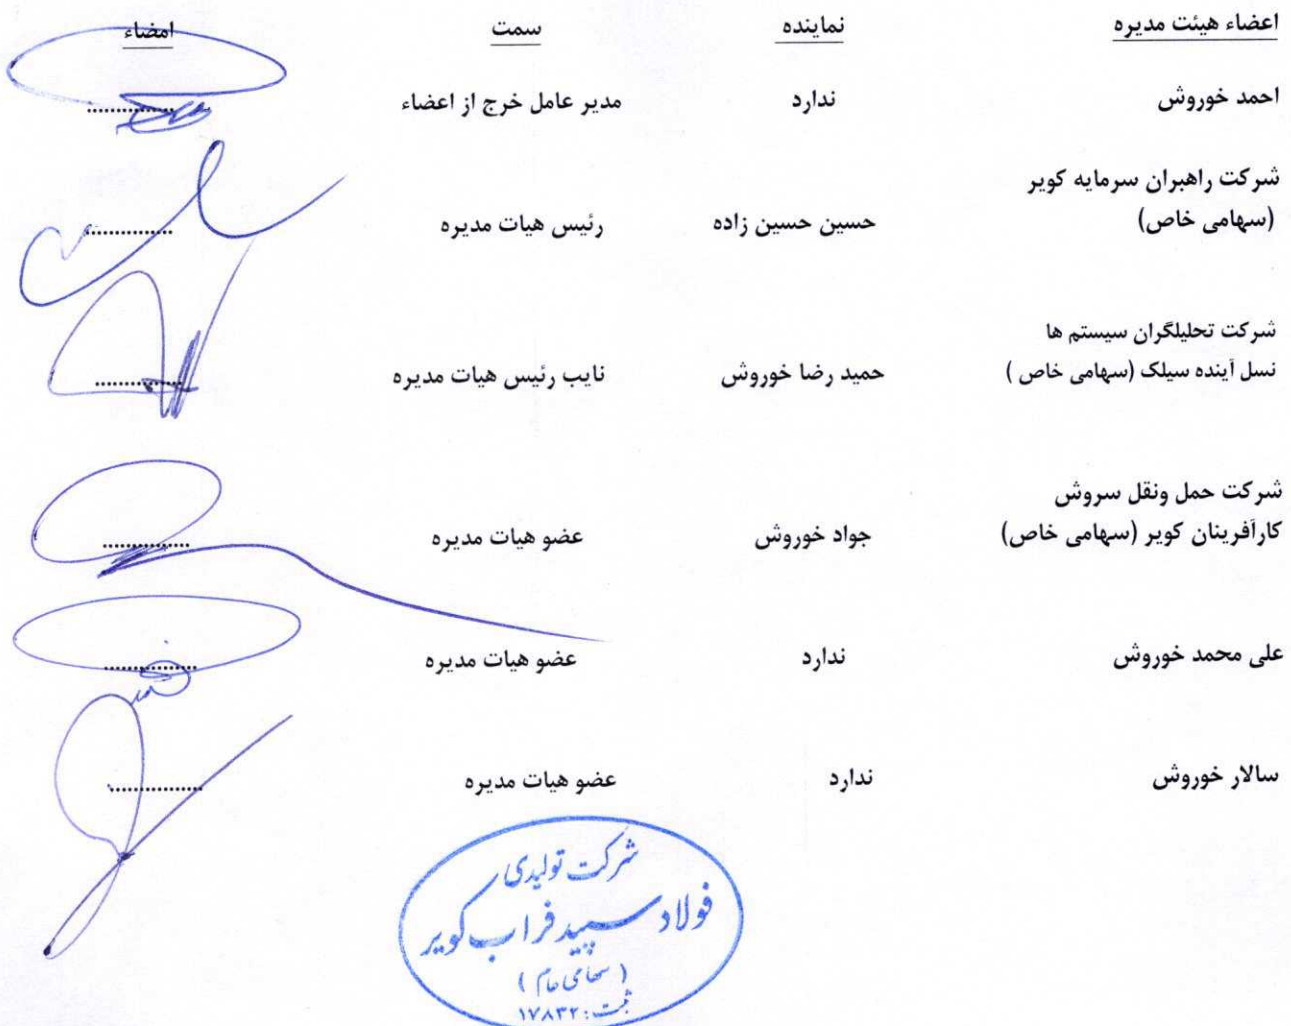 اعضاء هیئت مدیره نماینده سمت امضاء
احمد خوروش ندارد مدیر عامل خرج از اعضاء
شرکت راهبران سرمایه کویر
(سهامی خاص) حسین حسین زاده رئیس هیات مدیره
شرکت تحلیلگران سیستم ها
نسل آینده سیلک (سهامی خاص ) حمید رضا خوروش نایب رئیس هیات مدیره
شرکت حمل ونقل سروش
کارآفرینان کویر (سهامی خاص) جواد خوروش عضو هیات مدیره
علی محمد خوروش ندارد عضو هیات مدیره
سالار خوروش ندارد عضو هیات مدیره
شرکت تولیدی
فولاد سپید فراب کویر
( سهامی عام )
ثبت: ۱۷۸۳۲